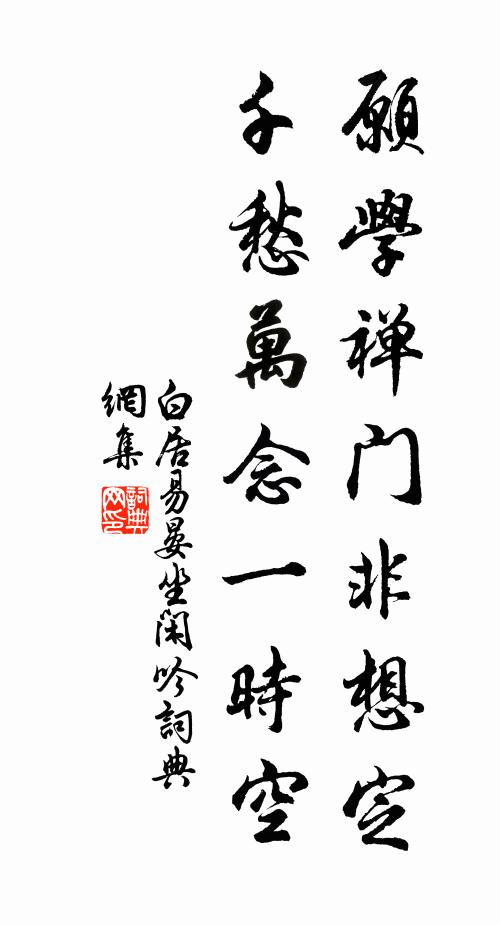 願學禅门非想定
千愁萬念一時空
白居易晏坐閑吟詞典
網集
詞典
网印